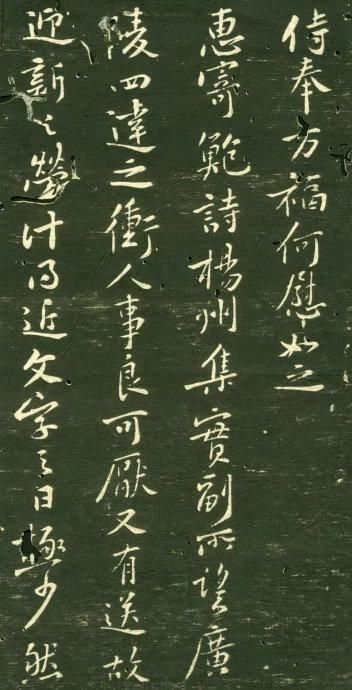 侍奉万福何慰如之
惠寄鲍詩楊州集實副所望廣
陵四達之衝人事良可厭又有送故
迎新之勞計得近文字之日極少然